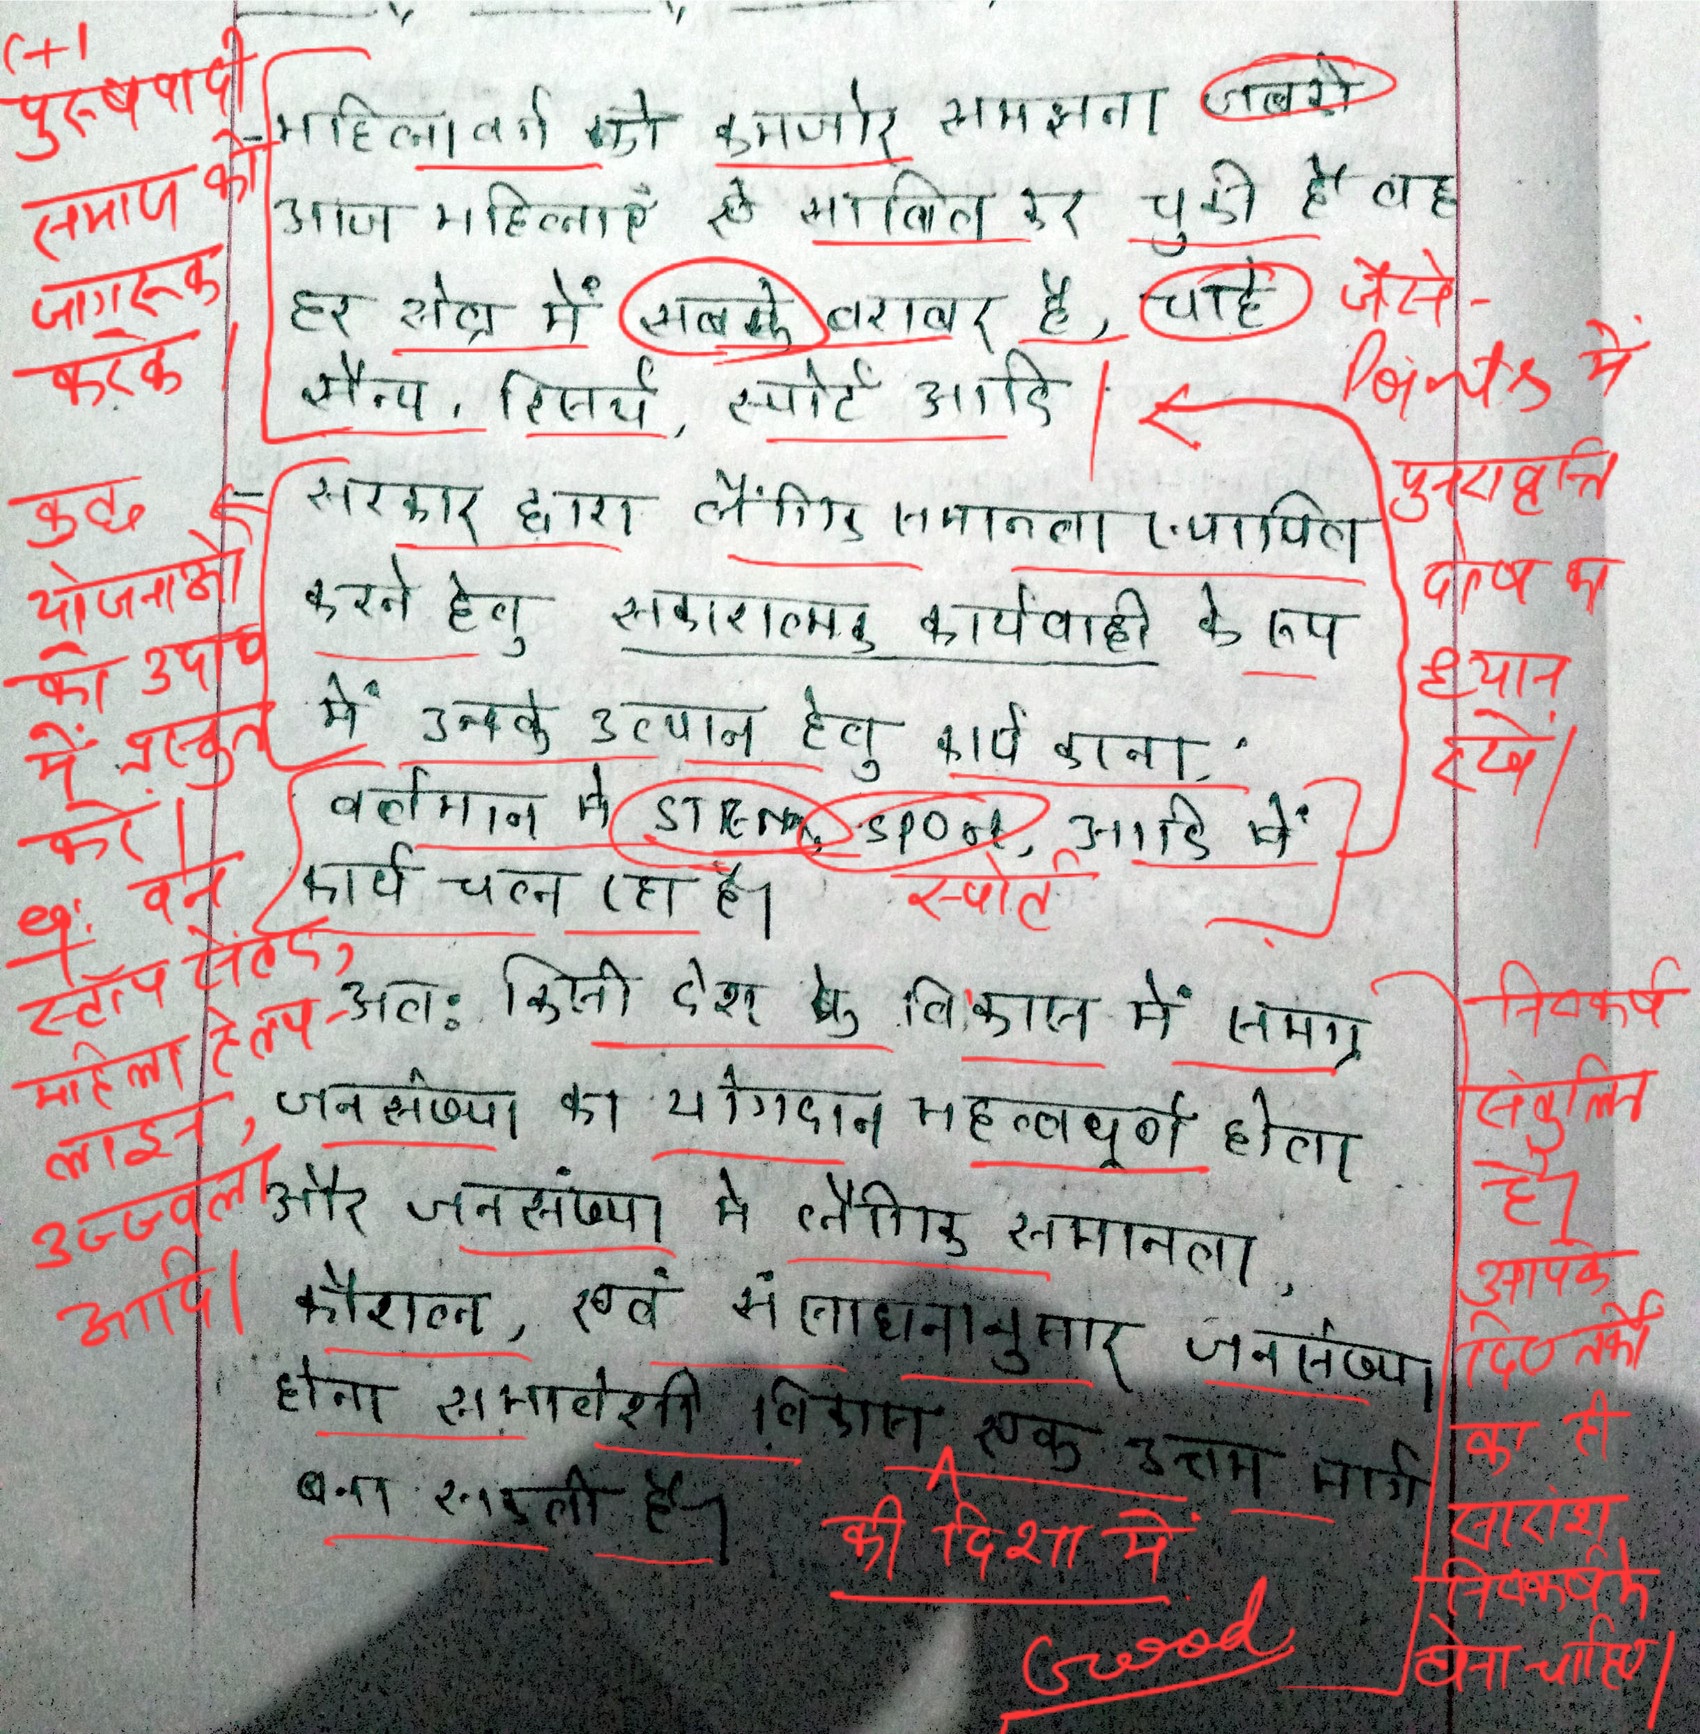 महिला वर्ग को कमजोर समझना जबसे
आज महिलाएँ ये साबित कर चुकी है वह
हर क्षेत्र में सबके बराबर है, चाहे
सैन्य, रिसर्च, स्पोर्ट आदि
सरकार द्वारा लैंगिक समानता स्थापित
करने हेतु सकारात्मक कार्यवाही के रूप
में उनके उत्थान हेतु कार्य करना.
वर्तमान में STEM, SPORT, आदि में
कार्य चल रहा है।
स्पोर्ट
अतः किसी देश के विकास में समग्र
जनसंख्या का योगदान महत्वपूर्ण होता
और जनसंख्या में लैंगिक समानता,
कौशल, एवं संसाधनानुसार जनसंख्या
होना समावेशी विकास एक उत्तम मार्ग
बना सकती है।
की दिशा में
Good
(+1
पुरूषवादी
समाज को
जागरूक
करके।
कुछ
योजनाओं
को उदा०
में प्रस्तुत
करें।
वन
स्टॉप सेंटर,
महिला हेल्प
लाइन,
उज्ज्वला
आदि।
जैसे-
Points में
पुनरावृत्ति
दोष का
ध्यान
रखें।
निष्कर्ष
संतुलित
है।
आपके
दिए तर्कों
का ही
सारांश
निष्कर्ष के
होना चाहिए।